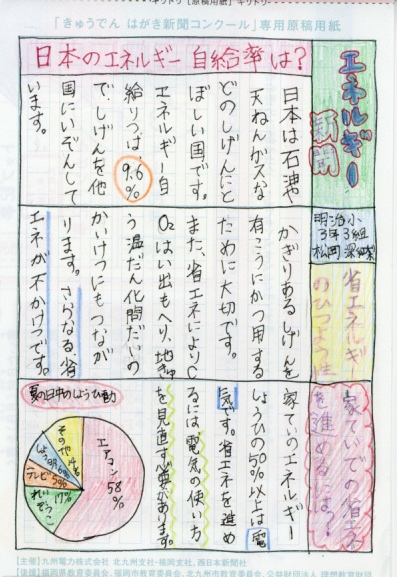 「きゅうでん はがき新聞コンクール」専用原稿用紙
エネルギー
新聞
明治小
3年3組
松岡
日本のエネルギー自給率は?
日本は石油や
天ねんガスな
どのしげんにと
ぼしい国です。
エネルギー自
給りつは、9.6%
で、しげんを他
国にいぞんして
います。
省エネルギー
のひつよう性
かぎりあるしげんを
有こうにかつ用する
ために大切です。
また、省エネによりC
O2はい出もへり、地きゅ
う温だん化問だいの
かいけつにもつなが
ります。さらなる、省
エネが不かけつです。
家ていでの省エネ
を進めるには?
家ていのエネルギー
しょうひの50%以上は電
気です。省エネを進め
るには電気の使い方
を見直す必要があります。
夏の日中のしょうひ
エアコン
58%
れいぞうこ
17%
テレビ
5%
しょう
6%
その他
14%
【主催】九州電力株式会社 北九州支社・福岡支社、西日本新聞社
【後援】福岡県教育委員会、福岡市教育委員会、北九州市教育委員会、公益財団法人 理想教育財団